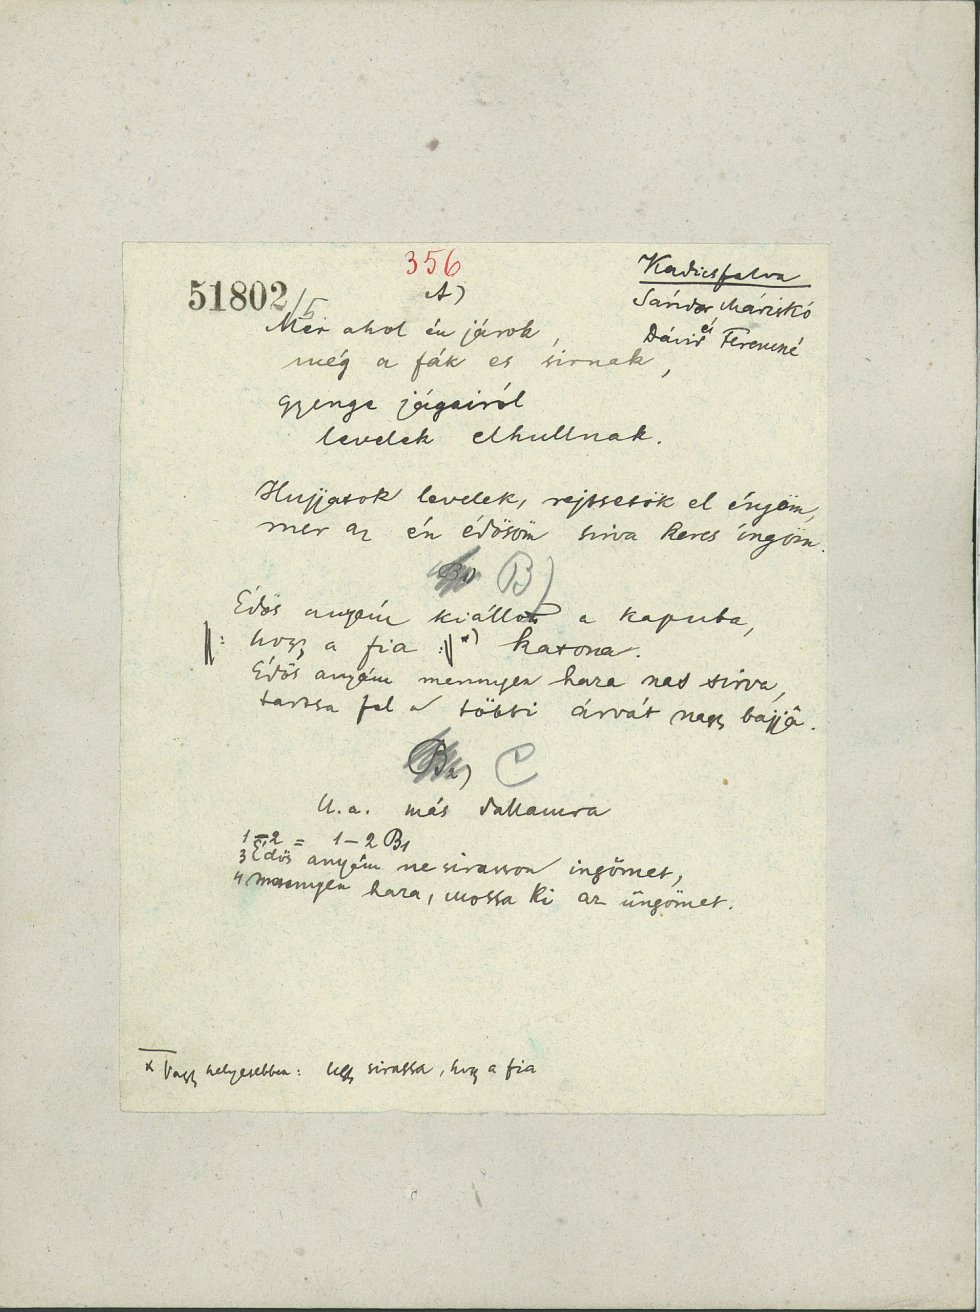 356
51802/5
A)
Kadicsfalva
Sándor Máriskó
és
Dávid Ferencné
Mer ahol én járok,
még a fák es sirnak,
gyenge jágairól
levelek elhullnak.
Hujjatok levelek, rejtsetök el éngöm,
mer az én édösöm sirva keres íngöm.
B1) B)
Édös anyám kiállott a kapuba,
‖: hogy a fia :‖ *) katona.
Édös anyám mennyen haza nas sirva,
tartsa fel a többi árvát nagy bajjâ.
B2) C
U.a. más dallamra
1–2 = 1–2 B1
3 Édös anyám ne sirasson ingömet,
4 mennyen haza, mossa ki az üngömet.
x Vagy helyesebben: Ugy sirassa, hogy a fia